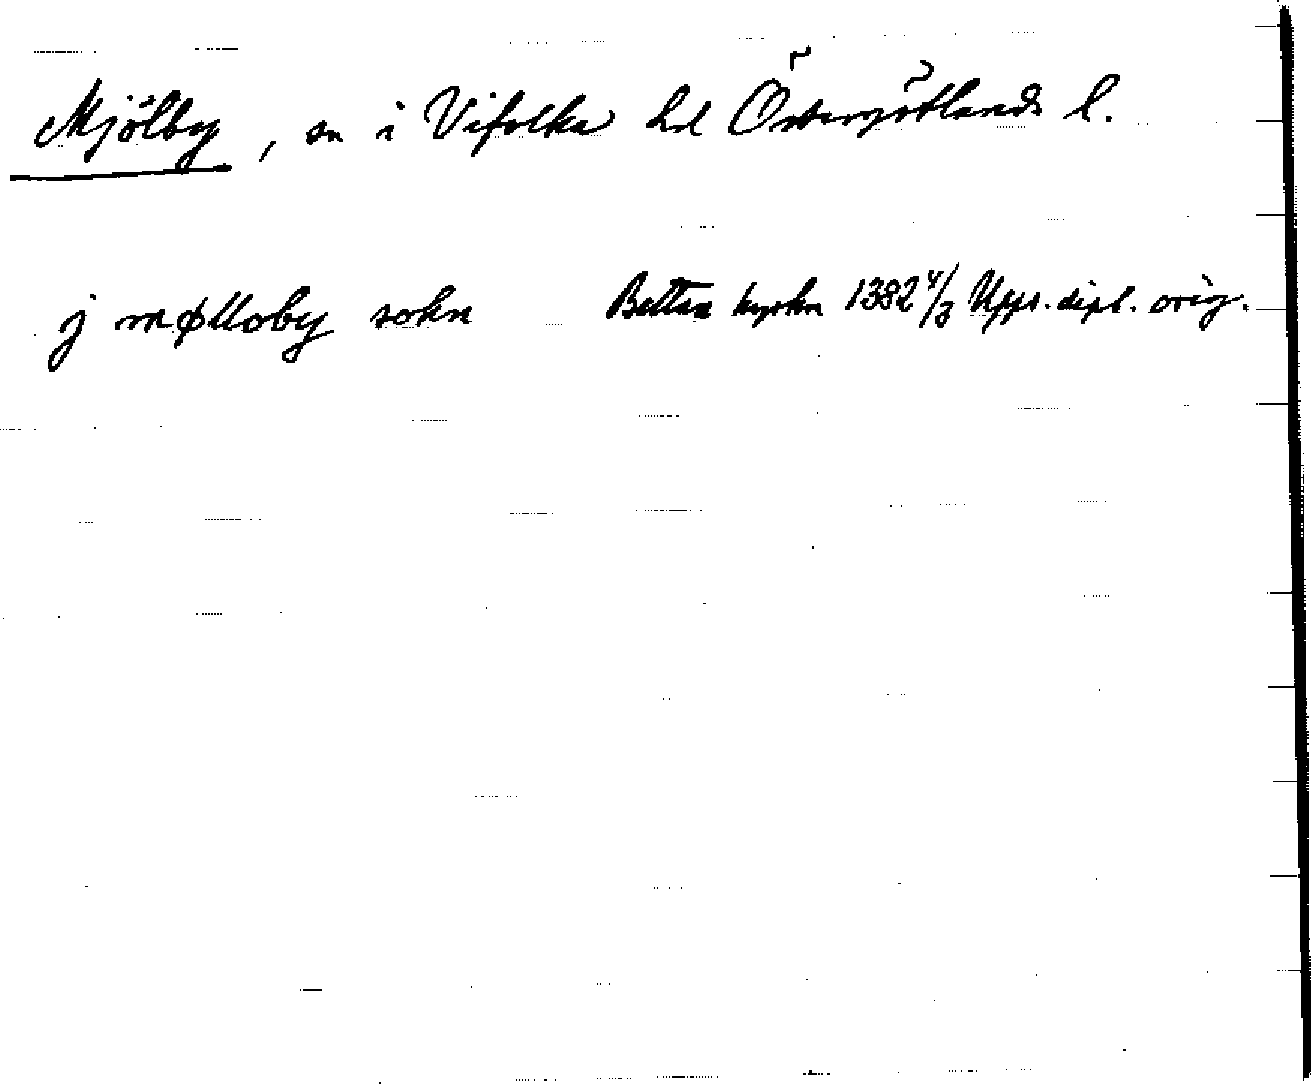 Mjölby, sn i Vifolka hd Östergötlands l.
j mølloby sokn Bettna kyrka 1382 4/3 Upps. dipl. orig.